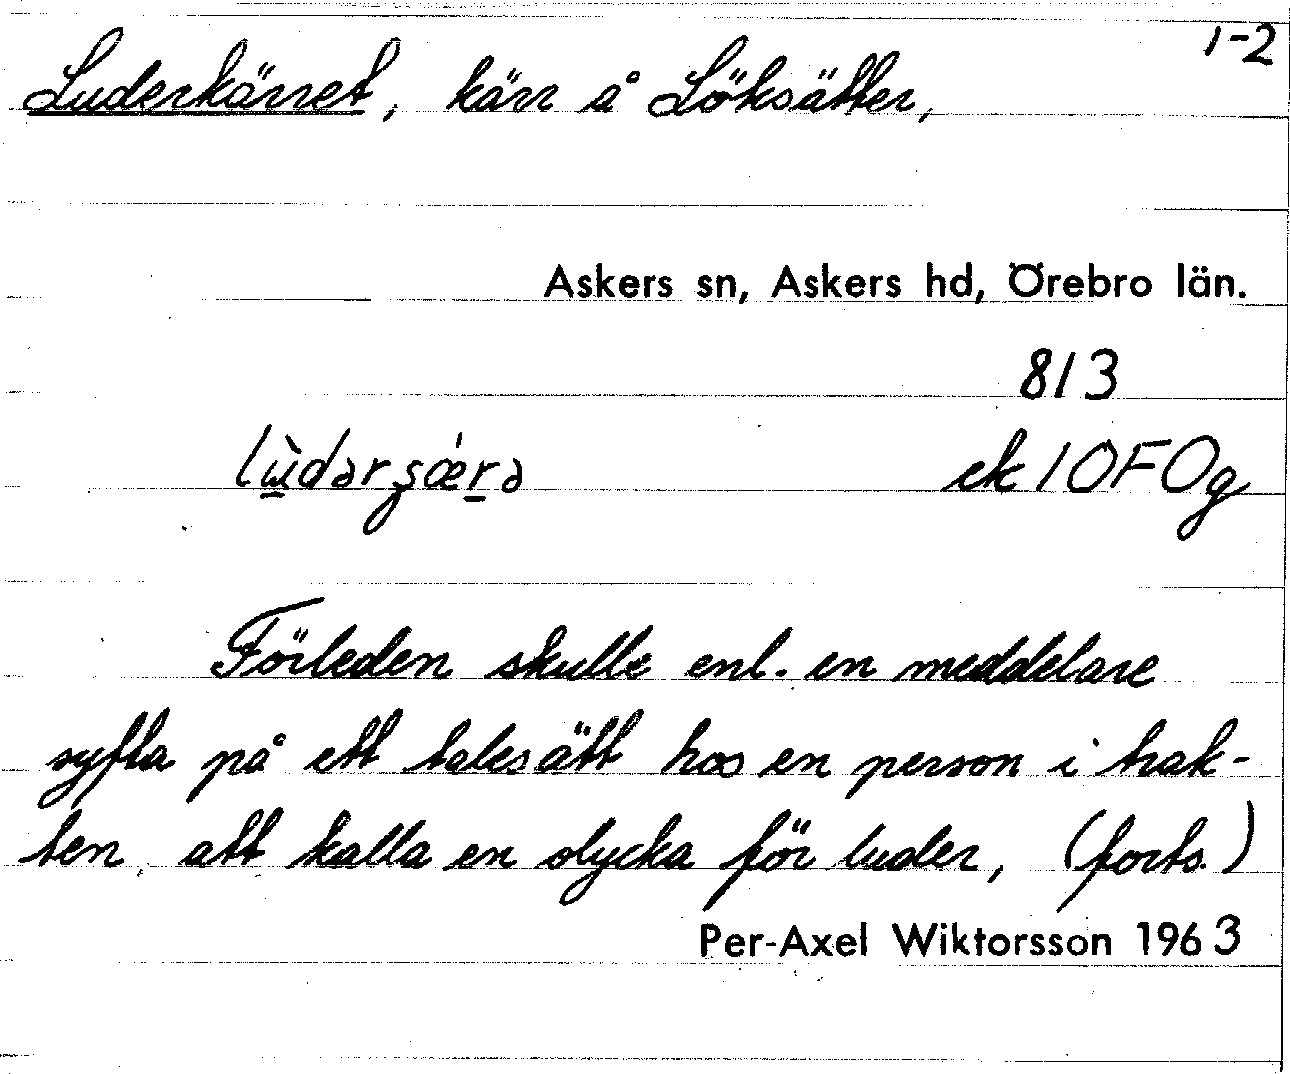 1-2
Luderkärret, kärr å Löksätter,
Askers sn, Askers hd, Örebro län.
813
lùdərʂǽrə ek 10F0g
Förleden skulle enl. en meddelare
syfta på ett talesätt hos en person i trak-
ten, att kalla en olycka för luder, (forts.)
Per-Axel Wiktorsson 1963